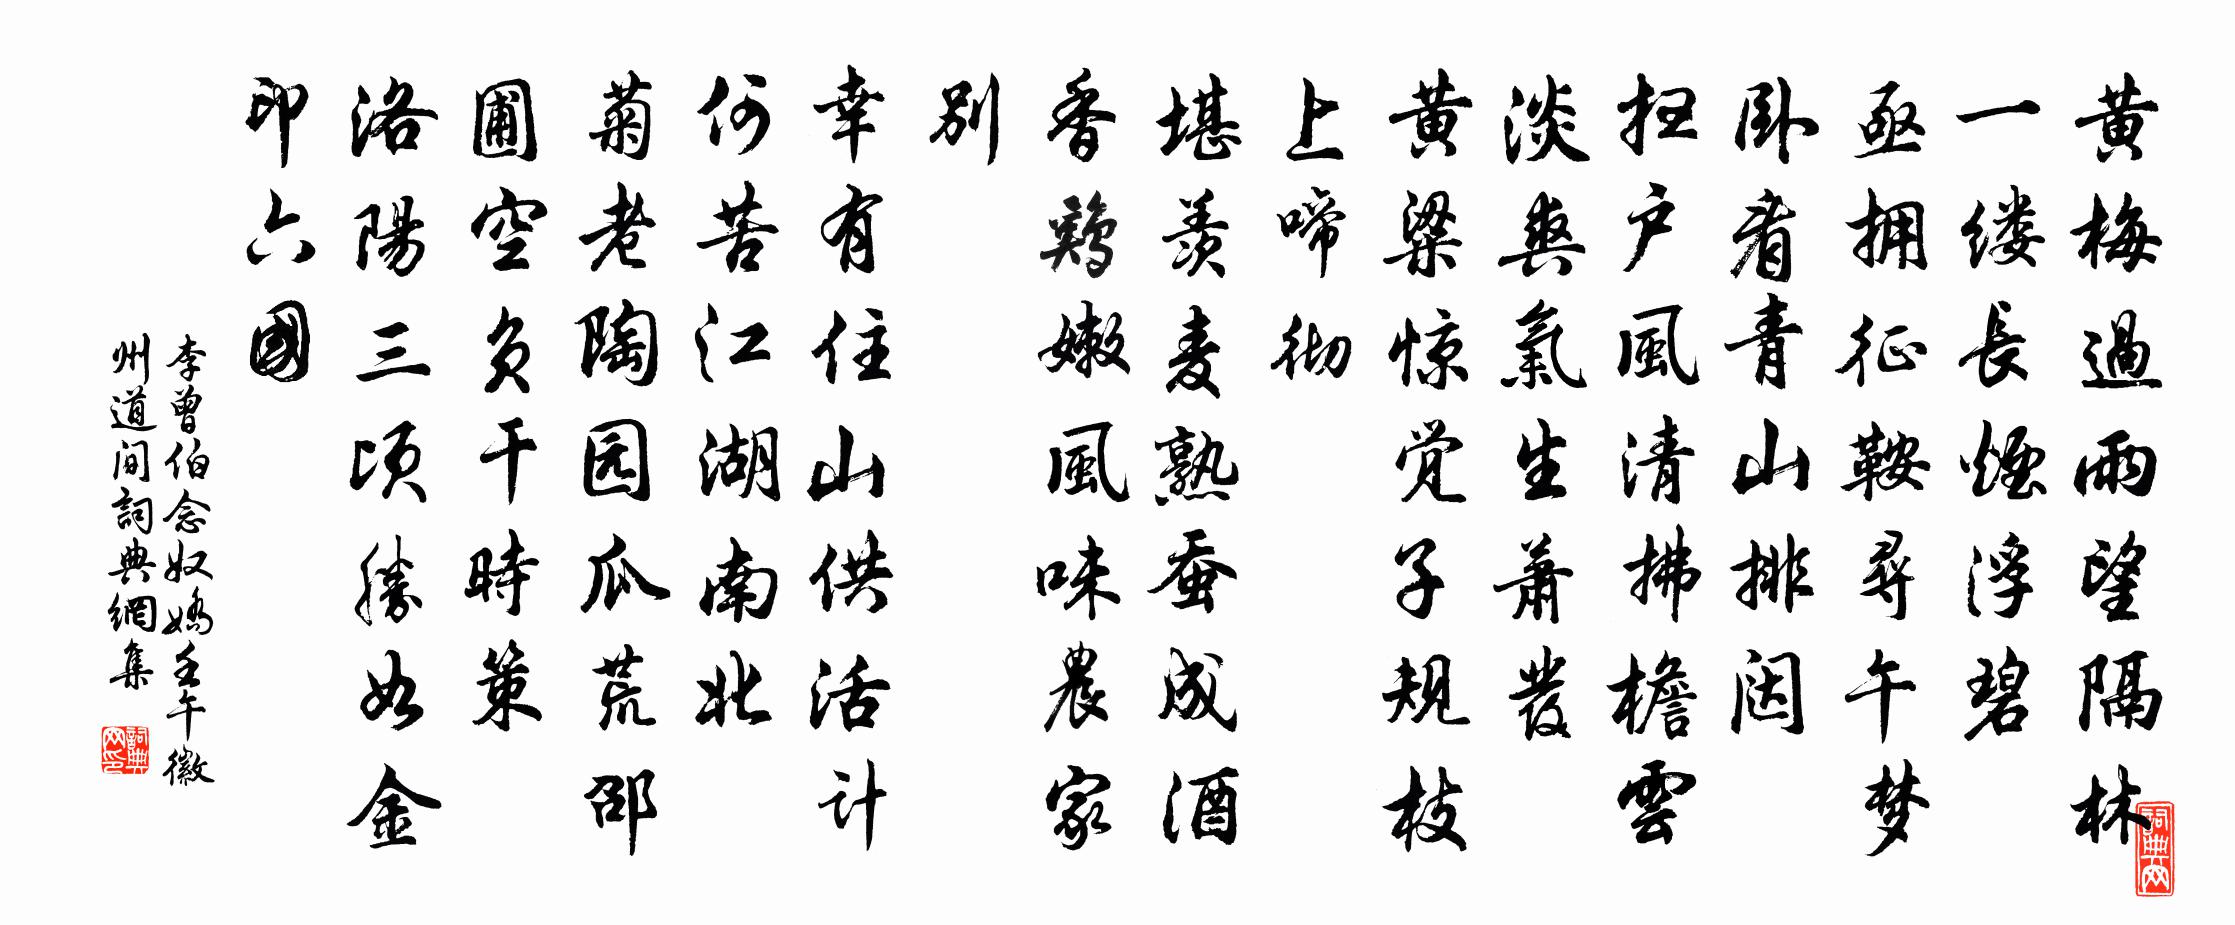 黄梅過雨望隔林
一缕長煙浮碧
亟拥征鞍尋午梦
卧看青山排闼
扭户風清拂檐雲
淡爽氣生萧發
黄粱惊觉子规枝
上啼彻
堪羡麦熟蚕成酒
香鶏嫩風味農家
别
幸有住山供活计
何苦江湖南北
菊老陶园瓜荒邵
圃空负干時策
洛陽三顷勝如金
印六國
李曾伯念奴嬌壬午徽
州道间詞典網集
詞典网印
詞典网